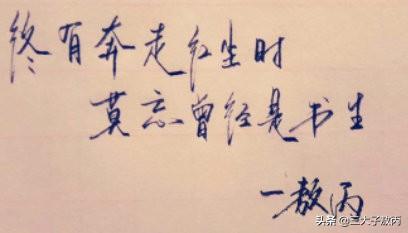 终有奔走红尘时
莫忘曾经是书生
一敖丙
头条 @三太子敖丙